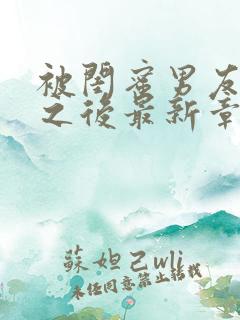 被閨蜜男友
之後最新章
蘇妲己wli
未经同意禁止转载